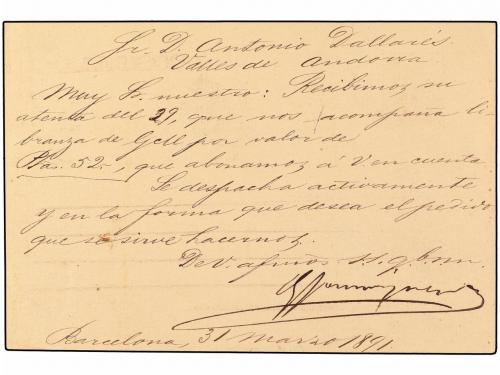 Sr. D. Antonio Dallarés
Valles de Andorra
Muy Sr. nuestro: Recibimos su
atenta del 29, que nos acompaña li
branza de Gell por valor de
Pta. 52.-, que abonamos á V en cuenta.
Se despacha activamente
y en la forma que desea el pedido
que se sirve hacernos.
De V. afmos s.s. q.b.s.m.
Barcelona, 31 Marzo 1891